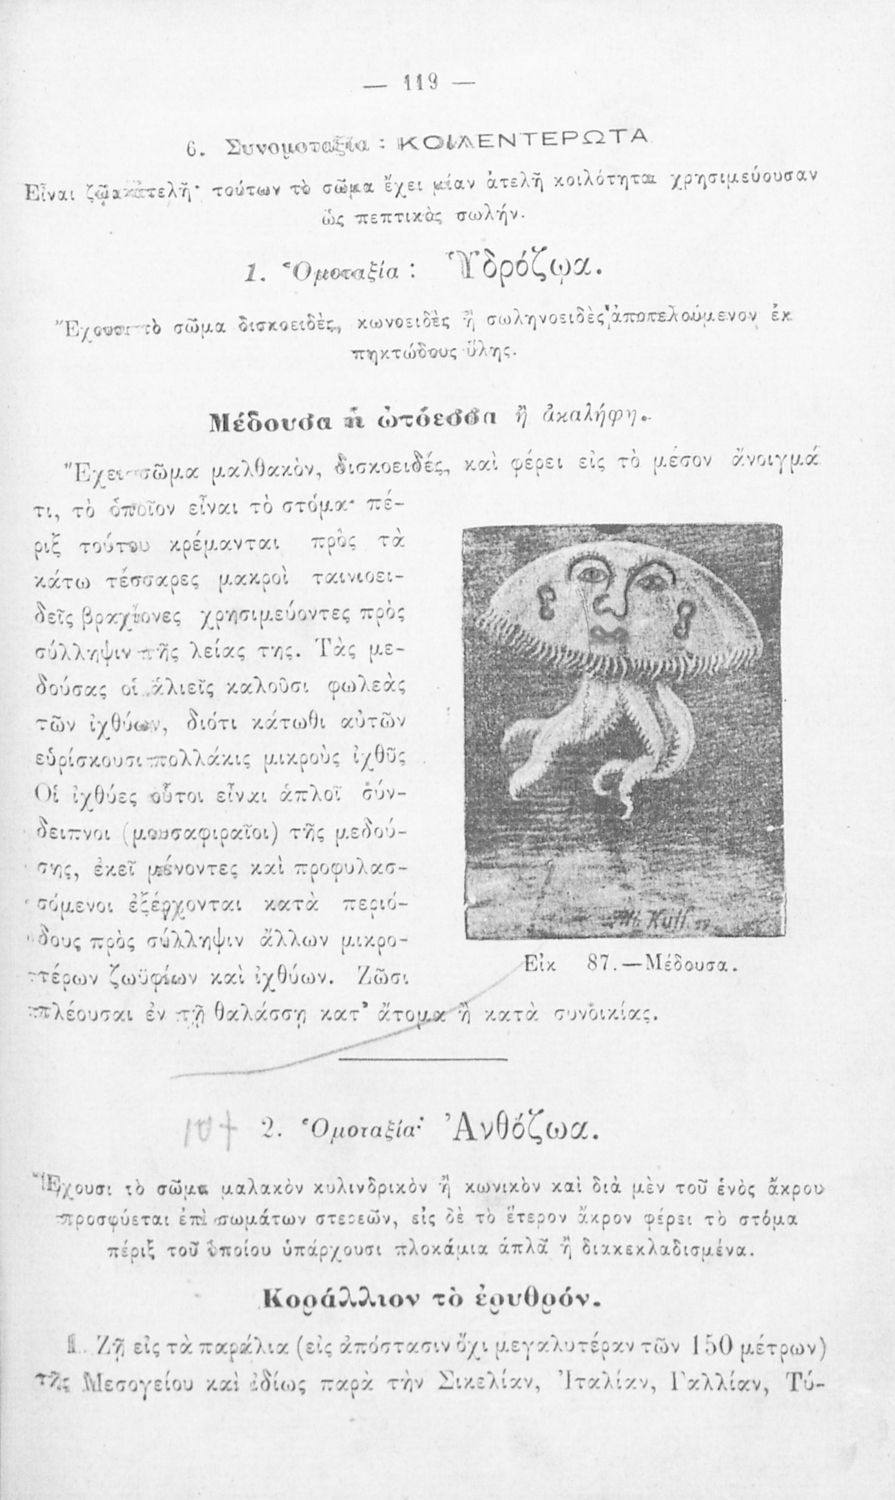 — 119 —
6. Συνομοταξία : ΚΟΙΛΕΝΤΕΡΩΤΑ
Εἶναι ζῷα ἀτελῆ· τούτων τὸ σῶμα ἔχει μίαν ἀτελῆ κοιλότητα χρησιμεύουσαν
ὡς πεπτικὸς σωλήν.
1. Ὁμοταξία : Ὑδρόζῳα.
Ἔχουσι τὸ σῶμα δισκοειδὲς, κωνοειδὲς ἢ σωληνοειδὲς ἀποτελούμενον ἐκ
πηκτώδους ὕλης.
Μέδουσα ἡ ὠτόεσσα ἢ ἀκαλήφη.
Ἔχει σῶμα μαλθακὸν, δισκοειδές, καὶ φέρει εἰς τὸ μέσον ἄνοιγμά
τι, τὸ ὁποῖον εἶναι τὸ στόμα· πέ-
ριξ τούτου κρέμανται πρὸς τὰ
κάτω τέσσαρες μακροὶ ταινιοει-
δεῖς βραχίονες χρησιμεύοντες πρὸς
σύλληψιν τῆς λείας της. Τὰς με-
δούσας οἱ ἁλιεῖς καλοῦσι φωλεὰς
τῶν ἰχθύων, διότι κάτωθι αὐτῶν
εὑρίσκουσι πολλάκις μικροὺς ἰχθῦς
Οἱ ἰχθύες οὗτοι εἶναι ἁπλοῖ σύν-
δειπνοι (μουσαφιραῖοι) τῆς μεδού-
σης, ἐκεῖ μένοντες καὶ προφυλασ-
σόμενοι ἐξέρχονται κατὰ περιό-
δους πρὸς σύλληψιν ἄλλων μικρο-
τέρων ζωϋφίων καὶ ἰχθύων. Ζῶσι
πλέουσαι ἐν τῇ θαλάσσῃ κατ' ἄτομα ἢ κατὰ συνοικίας.
Εἰκ 87.—Μέδουσα.
2. Ὁμοταξία· Ἀνθόζωα.
Ἔχουσι τὸ σῶμα μαλακὸν κυλινδρικὸν ἢ κωνικὸν καὶ διὰ μὲν τοῦ ἑνὸς ἄκρου
προσφύεται ἐπὶ σωμάτων στερεῶν, εἰς δὲ τὸ ἕτερον ἄκρον φέρει τὸ στόμα
πέριξ τοῦ ὁποίου ὑπάρχουσι πλοκάμια ἁπλᾶ ἢ διακεκλαδισμένα.
Κοράλλιον τὸ ἐρυθρόν.
1. Ζῇ εἰς τὰ παράλια (εἰς ἀπόστασιν ὄχι μεγαλυτέραν τῶν 150 μέτρων)
τῆς Μεσογείου καὶ ἰδίως παρὰ τὴν Σικελίαν, Ἰταλίαν, Γαλλίαν, Τύ-